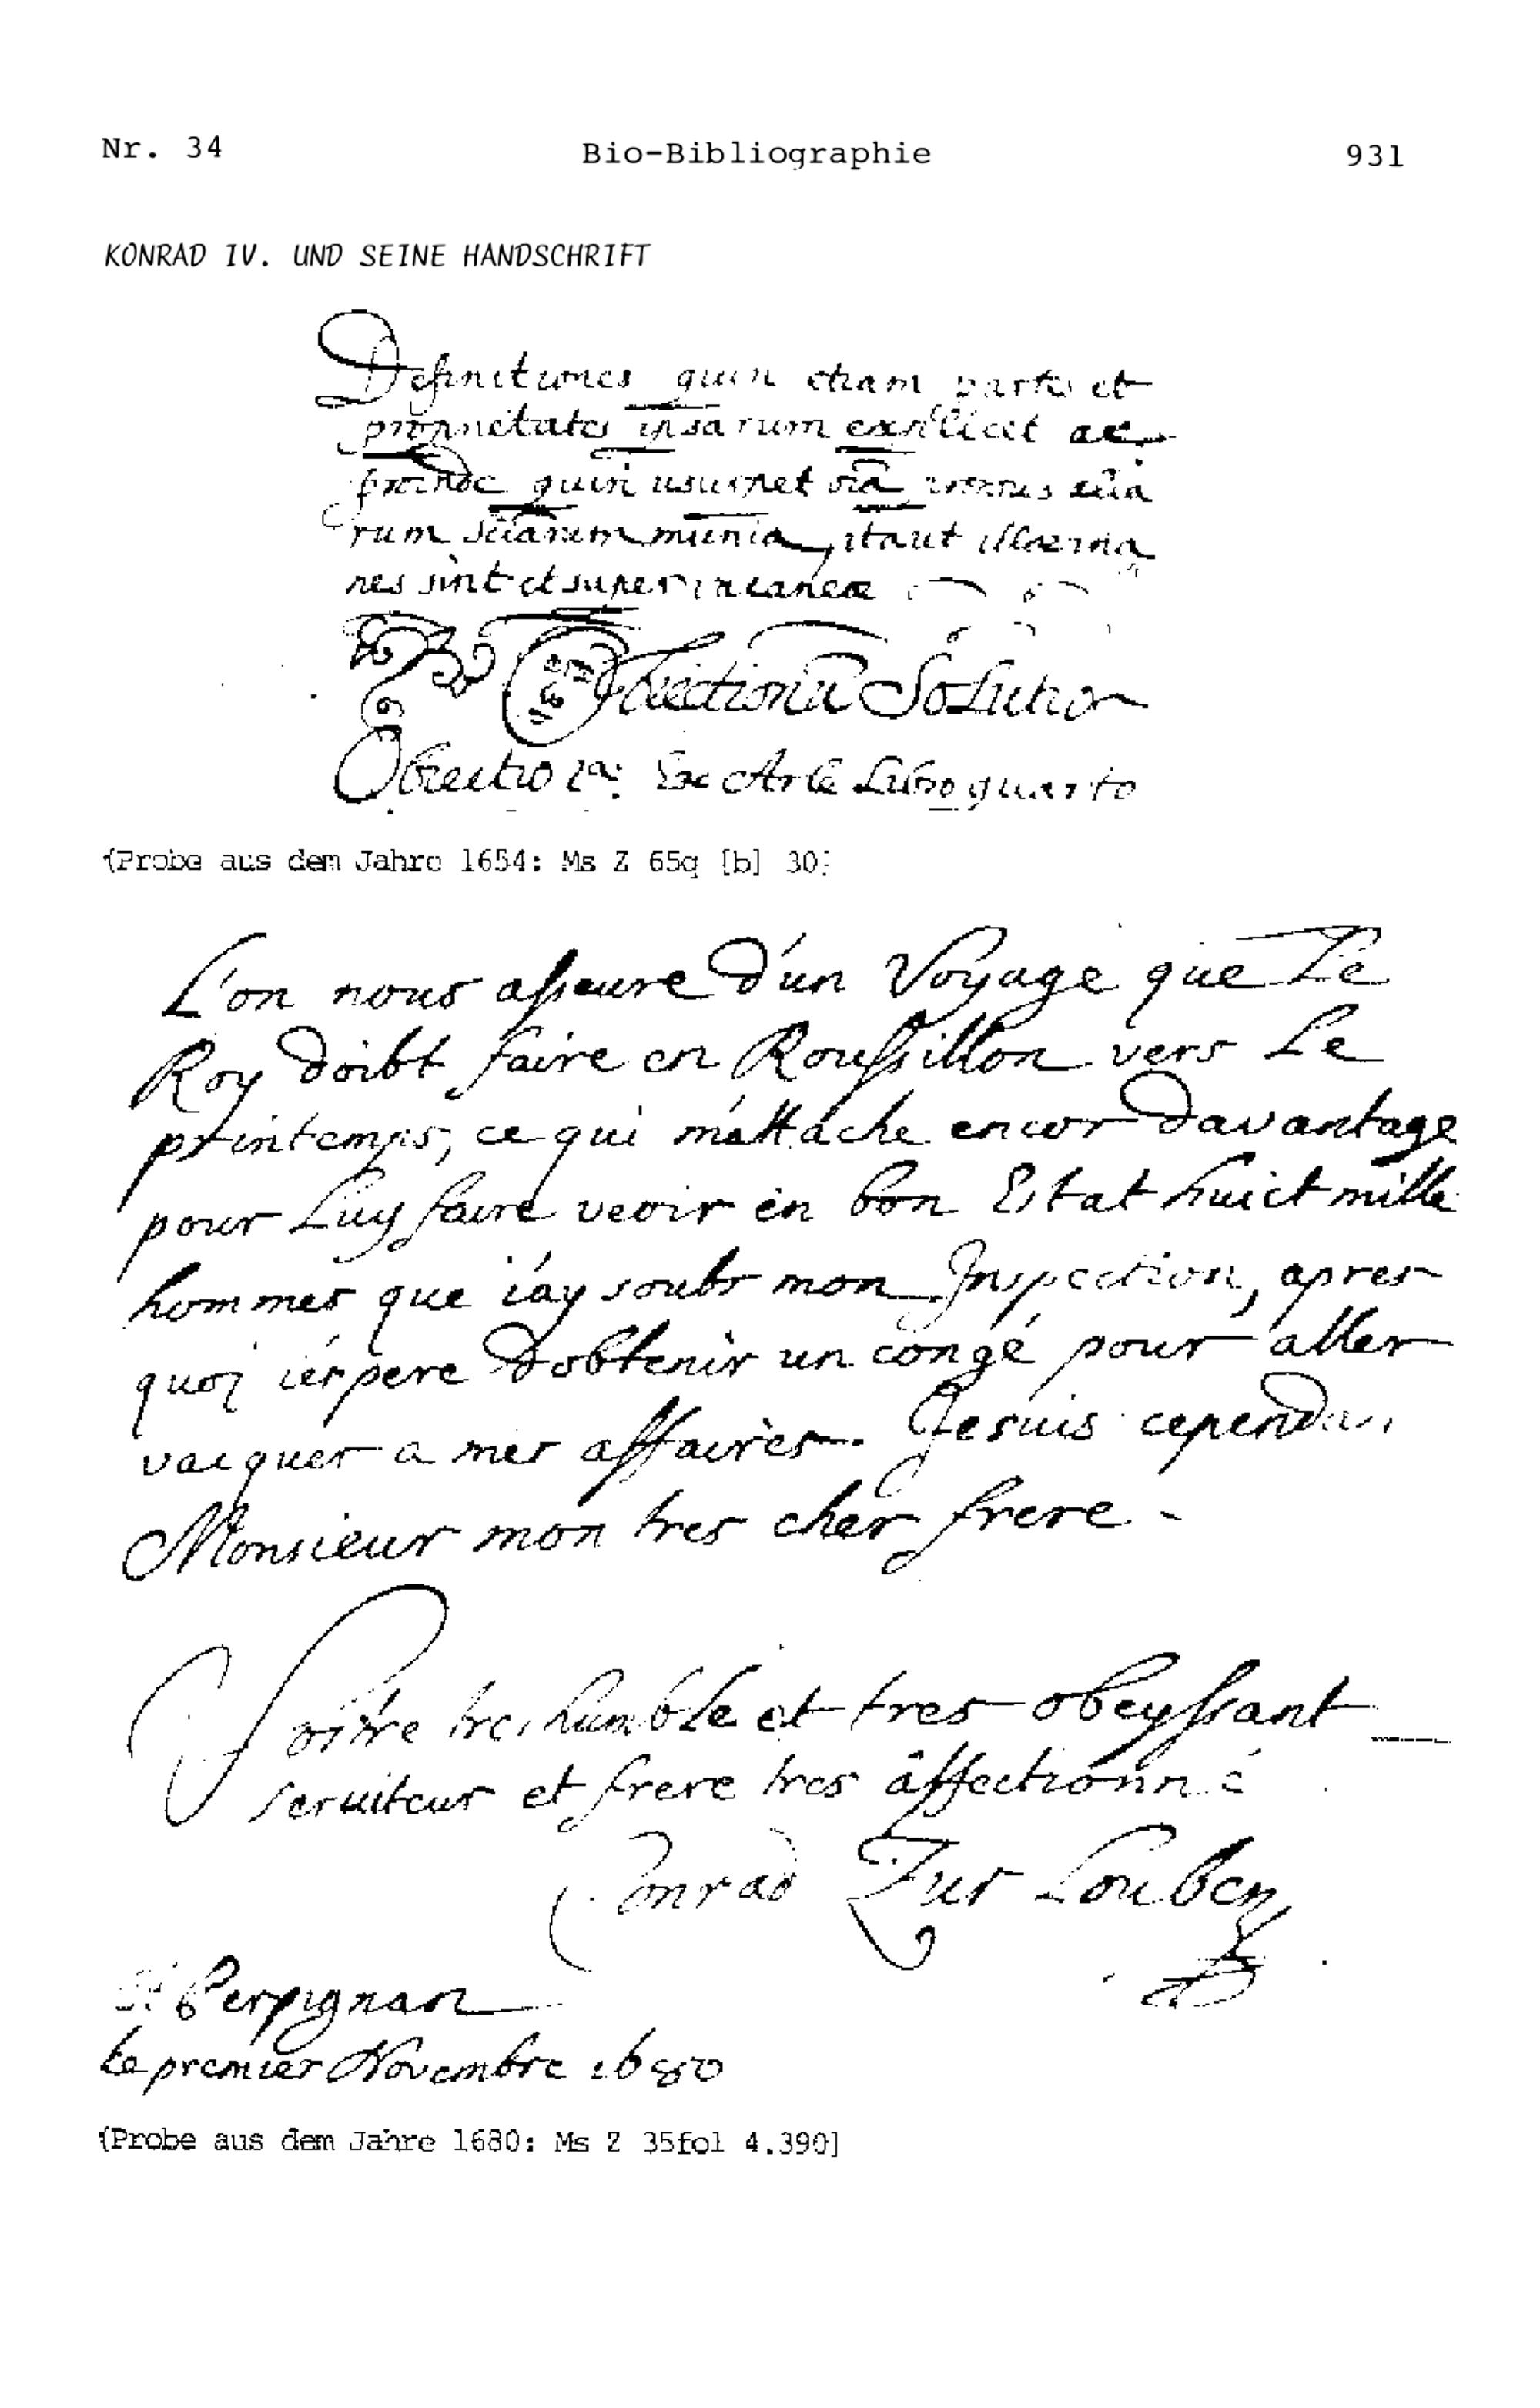 Nr. 34 Bio-Bibliographie 931
KONRAD IV. UND SEINE HANDSCHRIFT
Definitiones quin etiam partes et
proprietates ipsarum explicet ac
proinde quin usurpet sīa omnes alia
rum sciārum munia, itaut illae ina
nes sint et supervacaneae
Obiectionū Solutio
Obiectio 1a: Ex Arle Libro quarto
(Probe aus dem Jahre 1654: Ms Z 65q [b] 30]
L'on nous asseure d'un Voyage que Le
Roy doibt faire en Roussillon vers Le
printemps, ce qui m'attache encor davantage
pour Luy faire veoir en bon Estat huict mille
hommes que i'ay soubs mon Inspection, apres
quoi i'espere d'obtenir un congé pour aller
vacquer a mes affaires. Je suis cependan
Monsieur mon tres cher frere -
Votre tres humble et tres obeyssant
serviteur et frere tres affectionné
Conrad Zur Louben
Perpignan
le premier Novembre 1680
(Probe aus dem Jahre 1680: Ms Z 35fol 4.390]